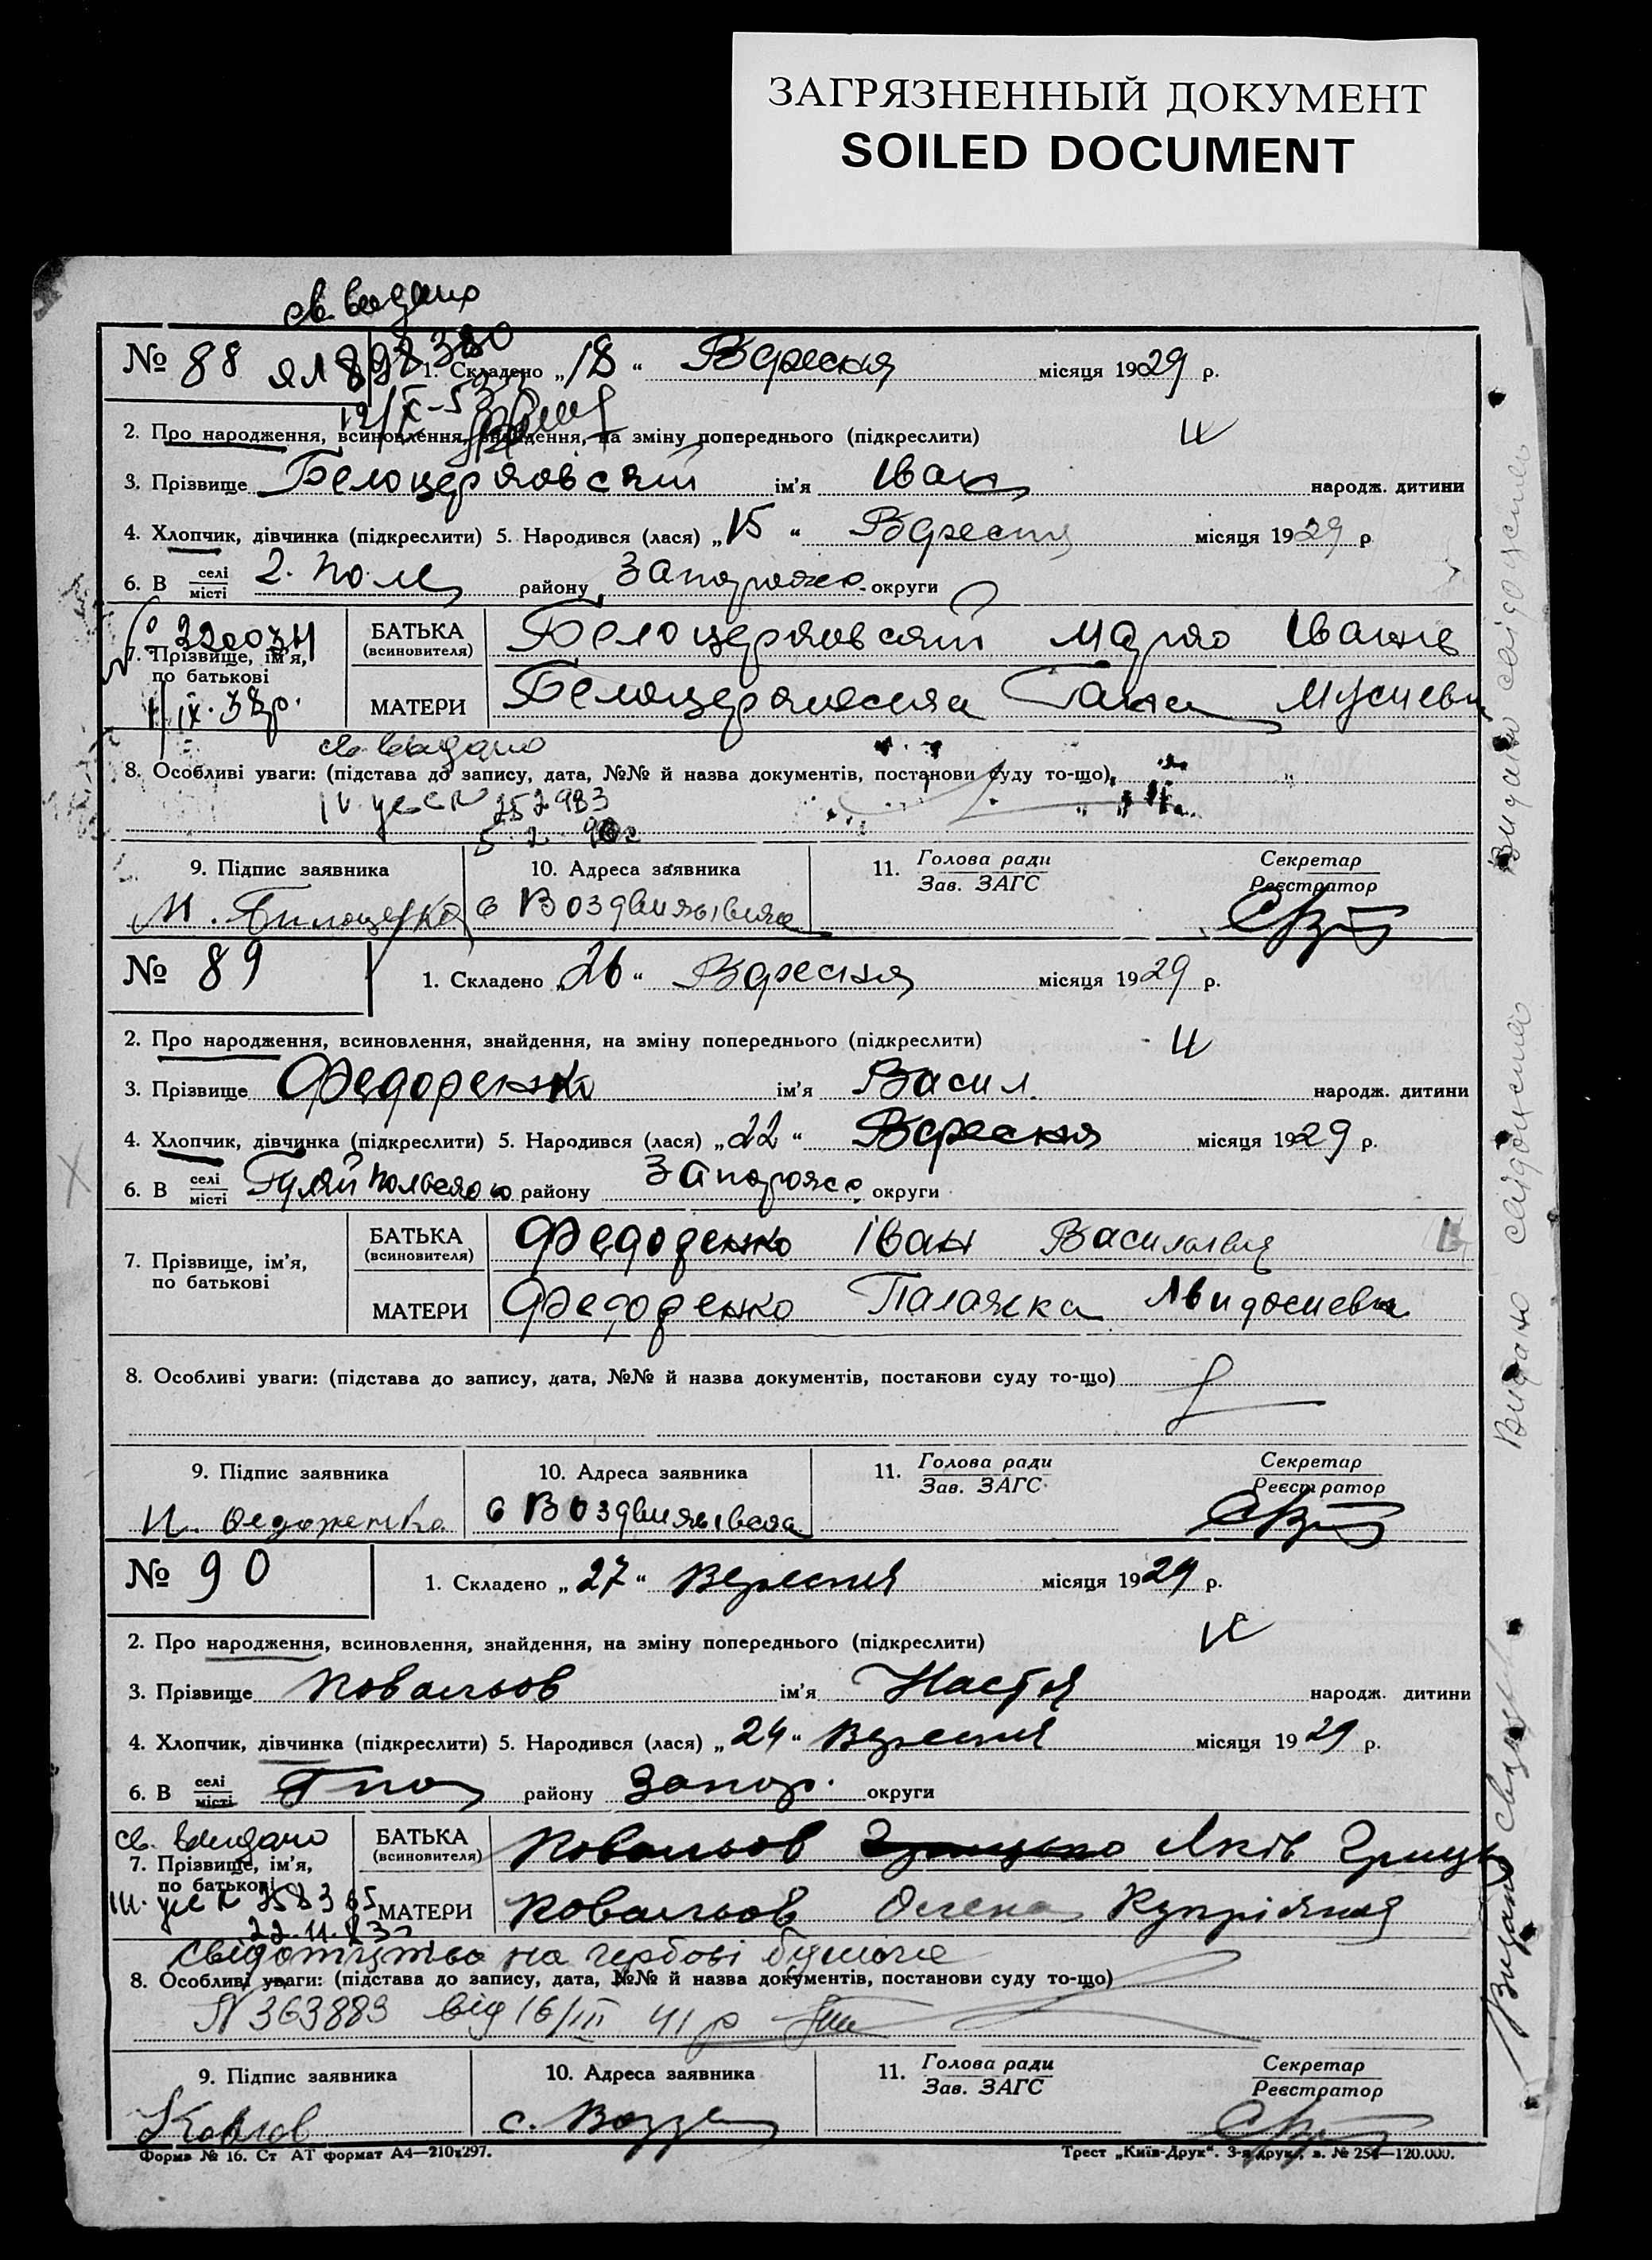 ЗАГРЯЗНЕННЫЙ ДОКУМЕНТ
SOILED DOCUMENT
св. видано
№ 88 ЯЛ 1. Складено „18“ Вересня місяця 1929 р.
2. Про народження, всиновлення, знайдення, на зміну попереднього (підкреслити)
3. Прізвище Белоцерковский ім'я Іван народж. дитини
4. Хлопчик, дівчинка (підкреслити) 5. Народився (лася) „15“ Вересня місяця 1929 р
6. В селі місті району Запорожс. округи
7. Прізвище, ім'я, по батькові
БАТЬКА (всиновителя) Белоцерковский Марко Іванів
МАТЕРИ Белоцерковская Ганна Мусиевн
св. видано
8. Особливі уваги: (підстава до запису, дата, №№ й назва документів, постанови суду то-що)
252983
9. Підпис заявника
10. Адреса заявника
11. Голова ради Зав. ЗАГС
Секретар Реєстратор
М. Билоцерко с Воздвижівка
№ 89 1. Складено „26“ Вересня місяця 1929 р.
2. Про народження, всиновлення, знайдення, на зміну попереднього (підкреслити)
3. Прізвище Федоренко ім'я Васил. народж. дитини
4. Хлопчик, дівчинка (підкреслити) 5. Народився (лася) „22“ Вересня місяця 1929 р.
6. В селі місті Гуляй польского району Запорожс. округи
7. Прізвище, ім'я, по батькові
БАТЬКА (всиновителя) Федоренко Іван Василівич
МАТЕРИ Федоренко Палажка
8. Особливі уваги: (підстава до запису, дата, №№ й назва документів, постанови суду то-що)
9. Підпис заявника
10. Адреса заявника
11. Голова ради Зав. ЗАГС
Секретар Реєстратор
И. Федоренко с Воздвижівка
№ 90 1. Складено „27“ Вересня місяця 1929 р.
2. Про народження, всиновлення, знайдення, на зміну попереднього (підкреслити)
3. Прізвище Ковальов ім'я Настя народж. дитини
4. Хлопчик, дівчинка (підкреслити) 5. Народився (лася) „24“ Вересня місяця 1929 р.
6. В селі місті Гпол району Запор. округи
св. видано
7. Прізвище, ім'я, по батькові
БАТЬКА (всиновителя) Ковальов Грицько Яків Гриць
МАТЕРИ Ковальов Олена Купріяновна
свідотцтво на гербові бумаге
8. Особливі уваги: (підстава до запису, дата, №№ й назва документів, постанови суду то-що)
N 363883 від 16/III 41 р
9. Підпис заявника
10. Адреса заявника
11. Голова ради Зав. ЗАГС
Секретар Реєстратор
с. Воздв
Форма № 16. Ст АТ формат А4—210х297.
Трест „Київ-Друк“. 3-я друк., з. № 254—120.000.
Видано свідоцтво
Видано свідоцтво
Видано свідоц